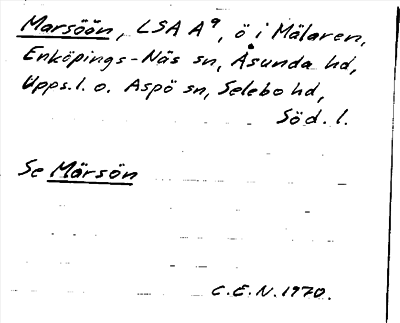 Marsöön, LSA A⁹, ö i Mälaren,
Enköpings-Näs sn, Åsunda hd,
Upps.l. o. Aspö sn, Selebo hd,
Söd. l.
Se Märsön
C.E.N. 1970.